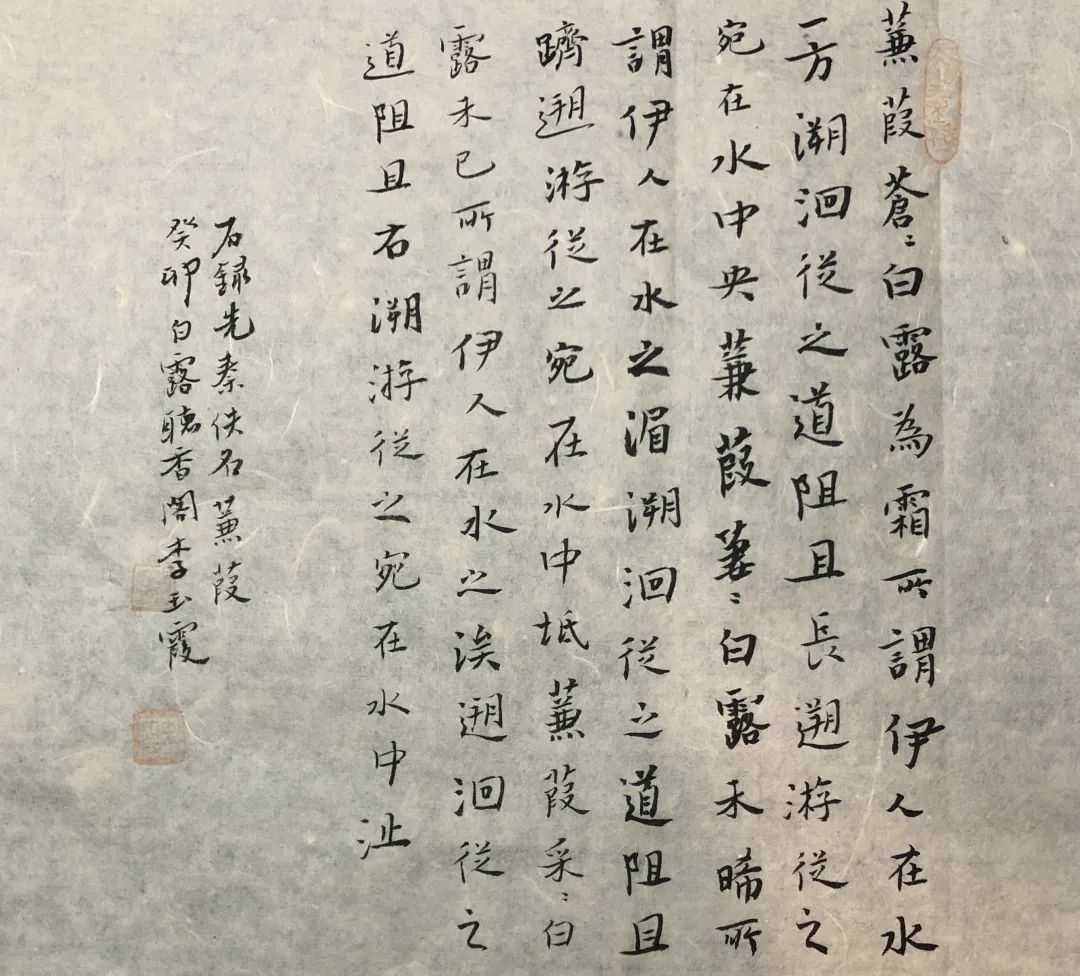 蒹葭蒼〻白露為霜所謂伊人在水
一方溯洄從之道阻且長遡游從之
宛在水中央蒹葭萋〻白露未晞所
謂伊人在水之湄溯洄從之道阻且
躋遡游從之宛在水中坻蒹葭采〻白
露未已所謂伊人在水之涘遡洄從之
道阻且右溯游從之宛在水中沚
右録先秦佚名蒹葭
癸卯白露聽香閣李玉霞